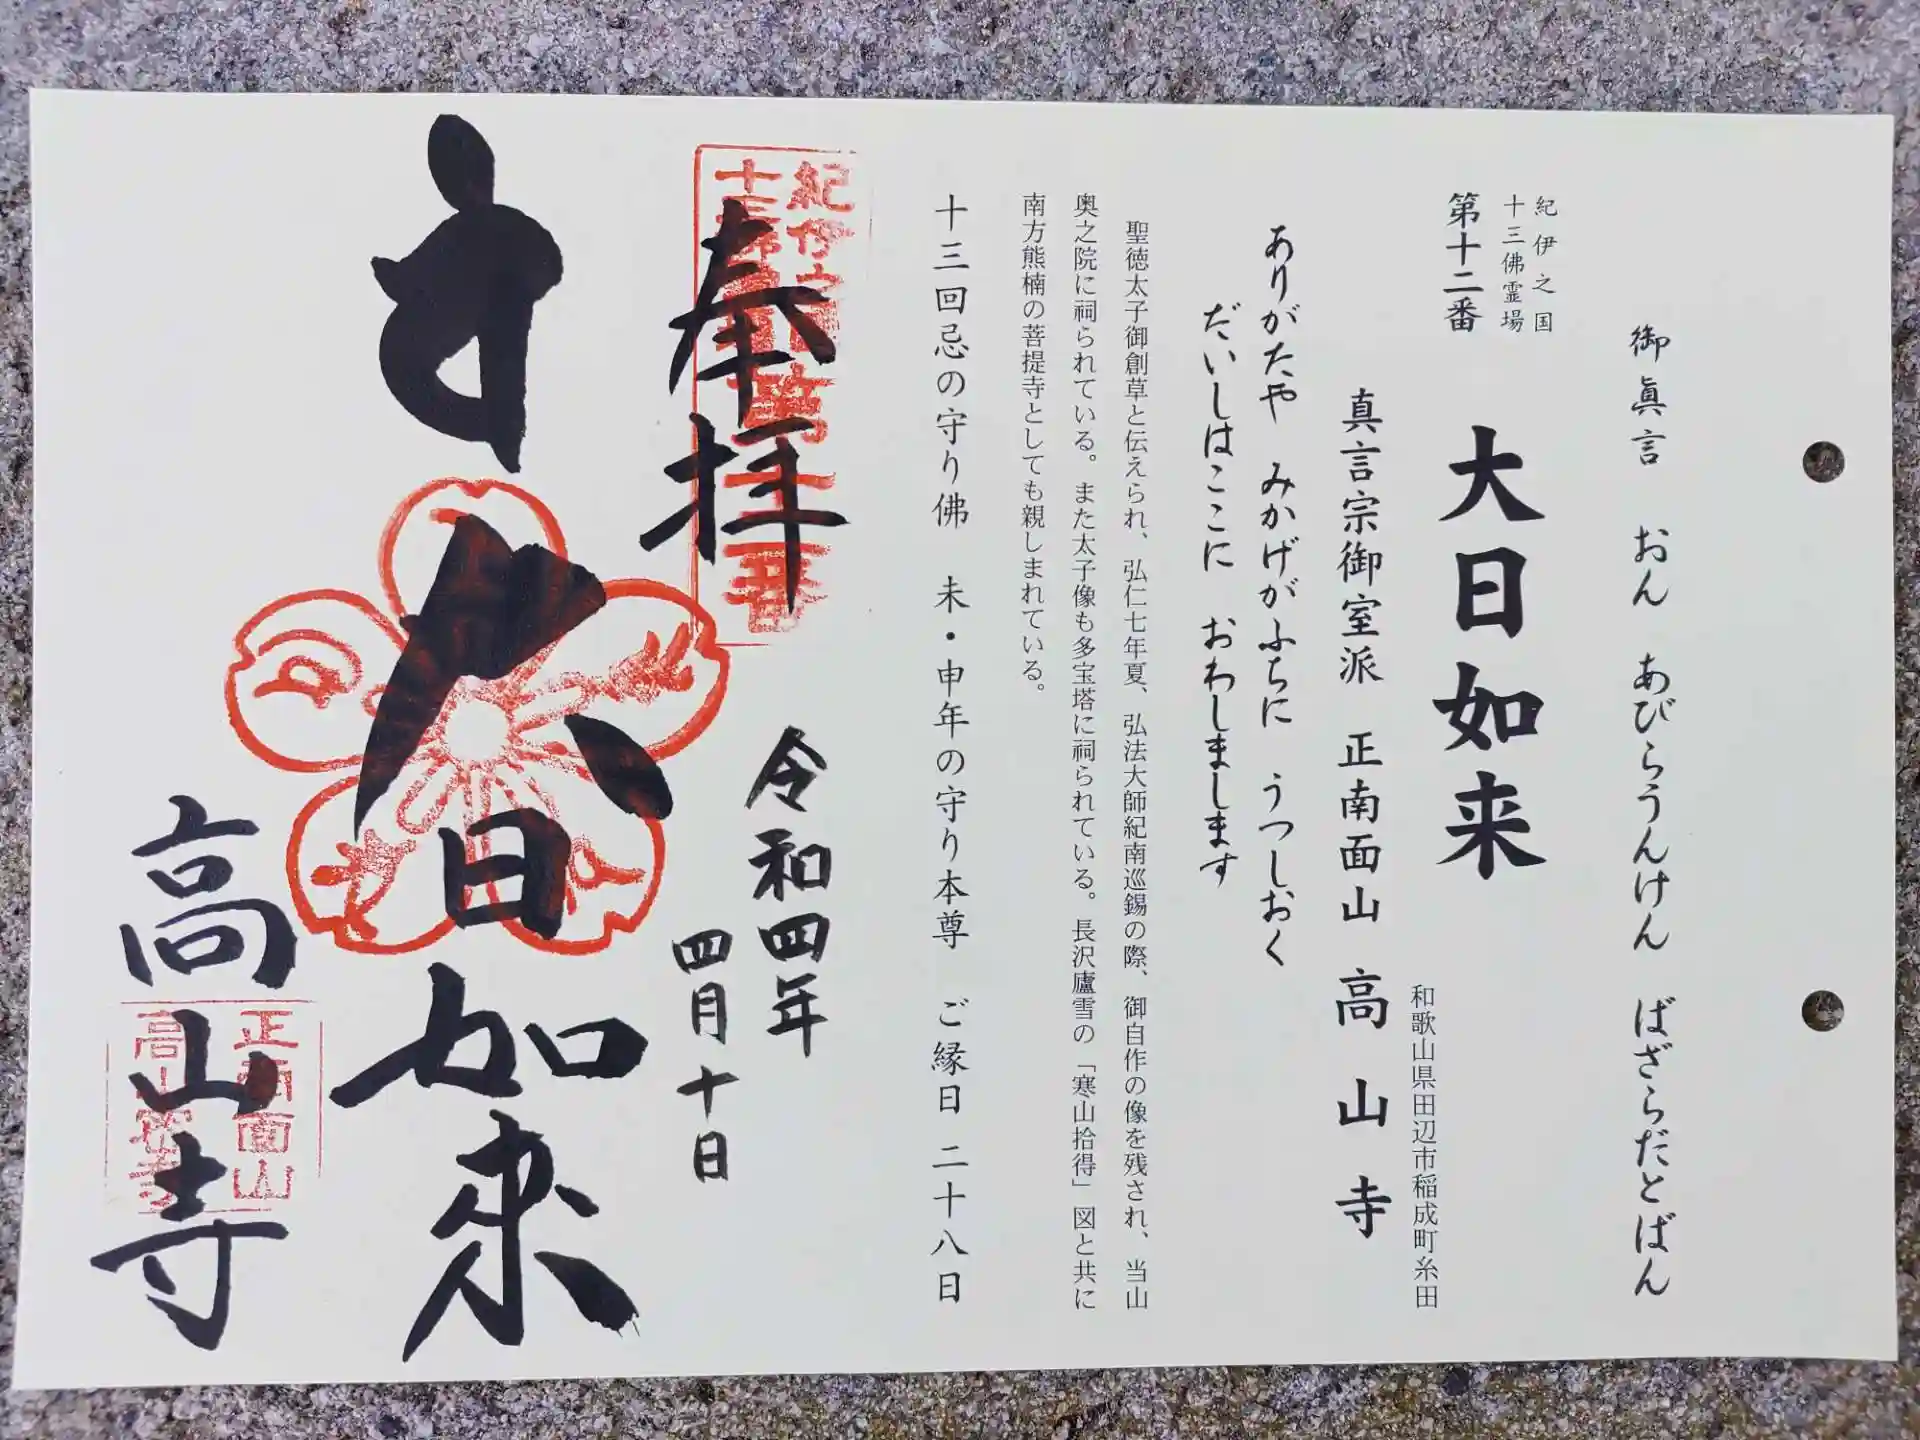 御眞言　おん　あびらうんけん　ばざらだとばん
紀伊之国
十三佛霊場
第十二番　大日如来
和歌山県田辺市稲成町糸田
真言宗御室派　正南面山　高山寺
ありがたや　みかげがふちに　うつしおく
だいしはここに　おわしまします
聖徳太子御創草と伝えられ、弘仁七年夏、弘法大師紀南巡錫の際、御自作の像を残され、当山
奥之院に祠られている。また太子像も多宝塔に祠られている。長沢廬雪の「寒山拾得」図と共に
南方熊楠の菩提寺としても親しまれている。
十三回忌の守り佛　未・申年の守り本尊　ご縁日　二十八日
奉拝
令和四年
四月十日
大日如来
高山寺
正南面山